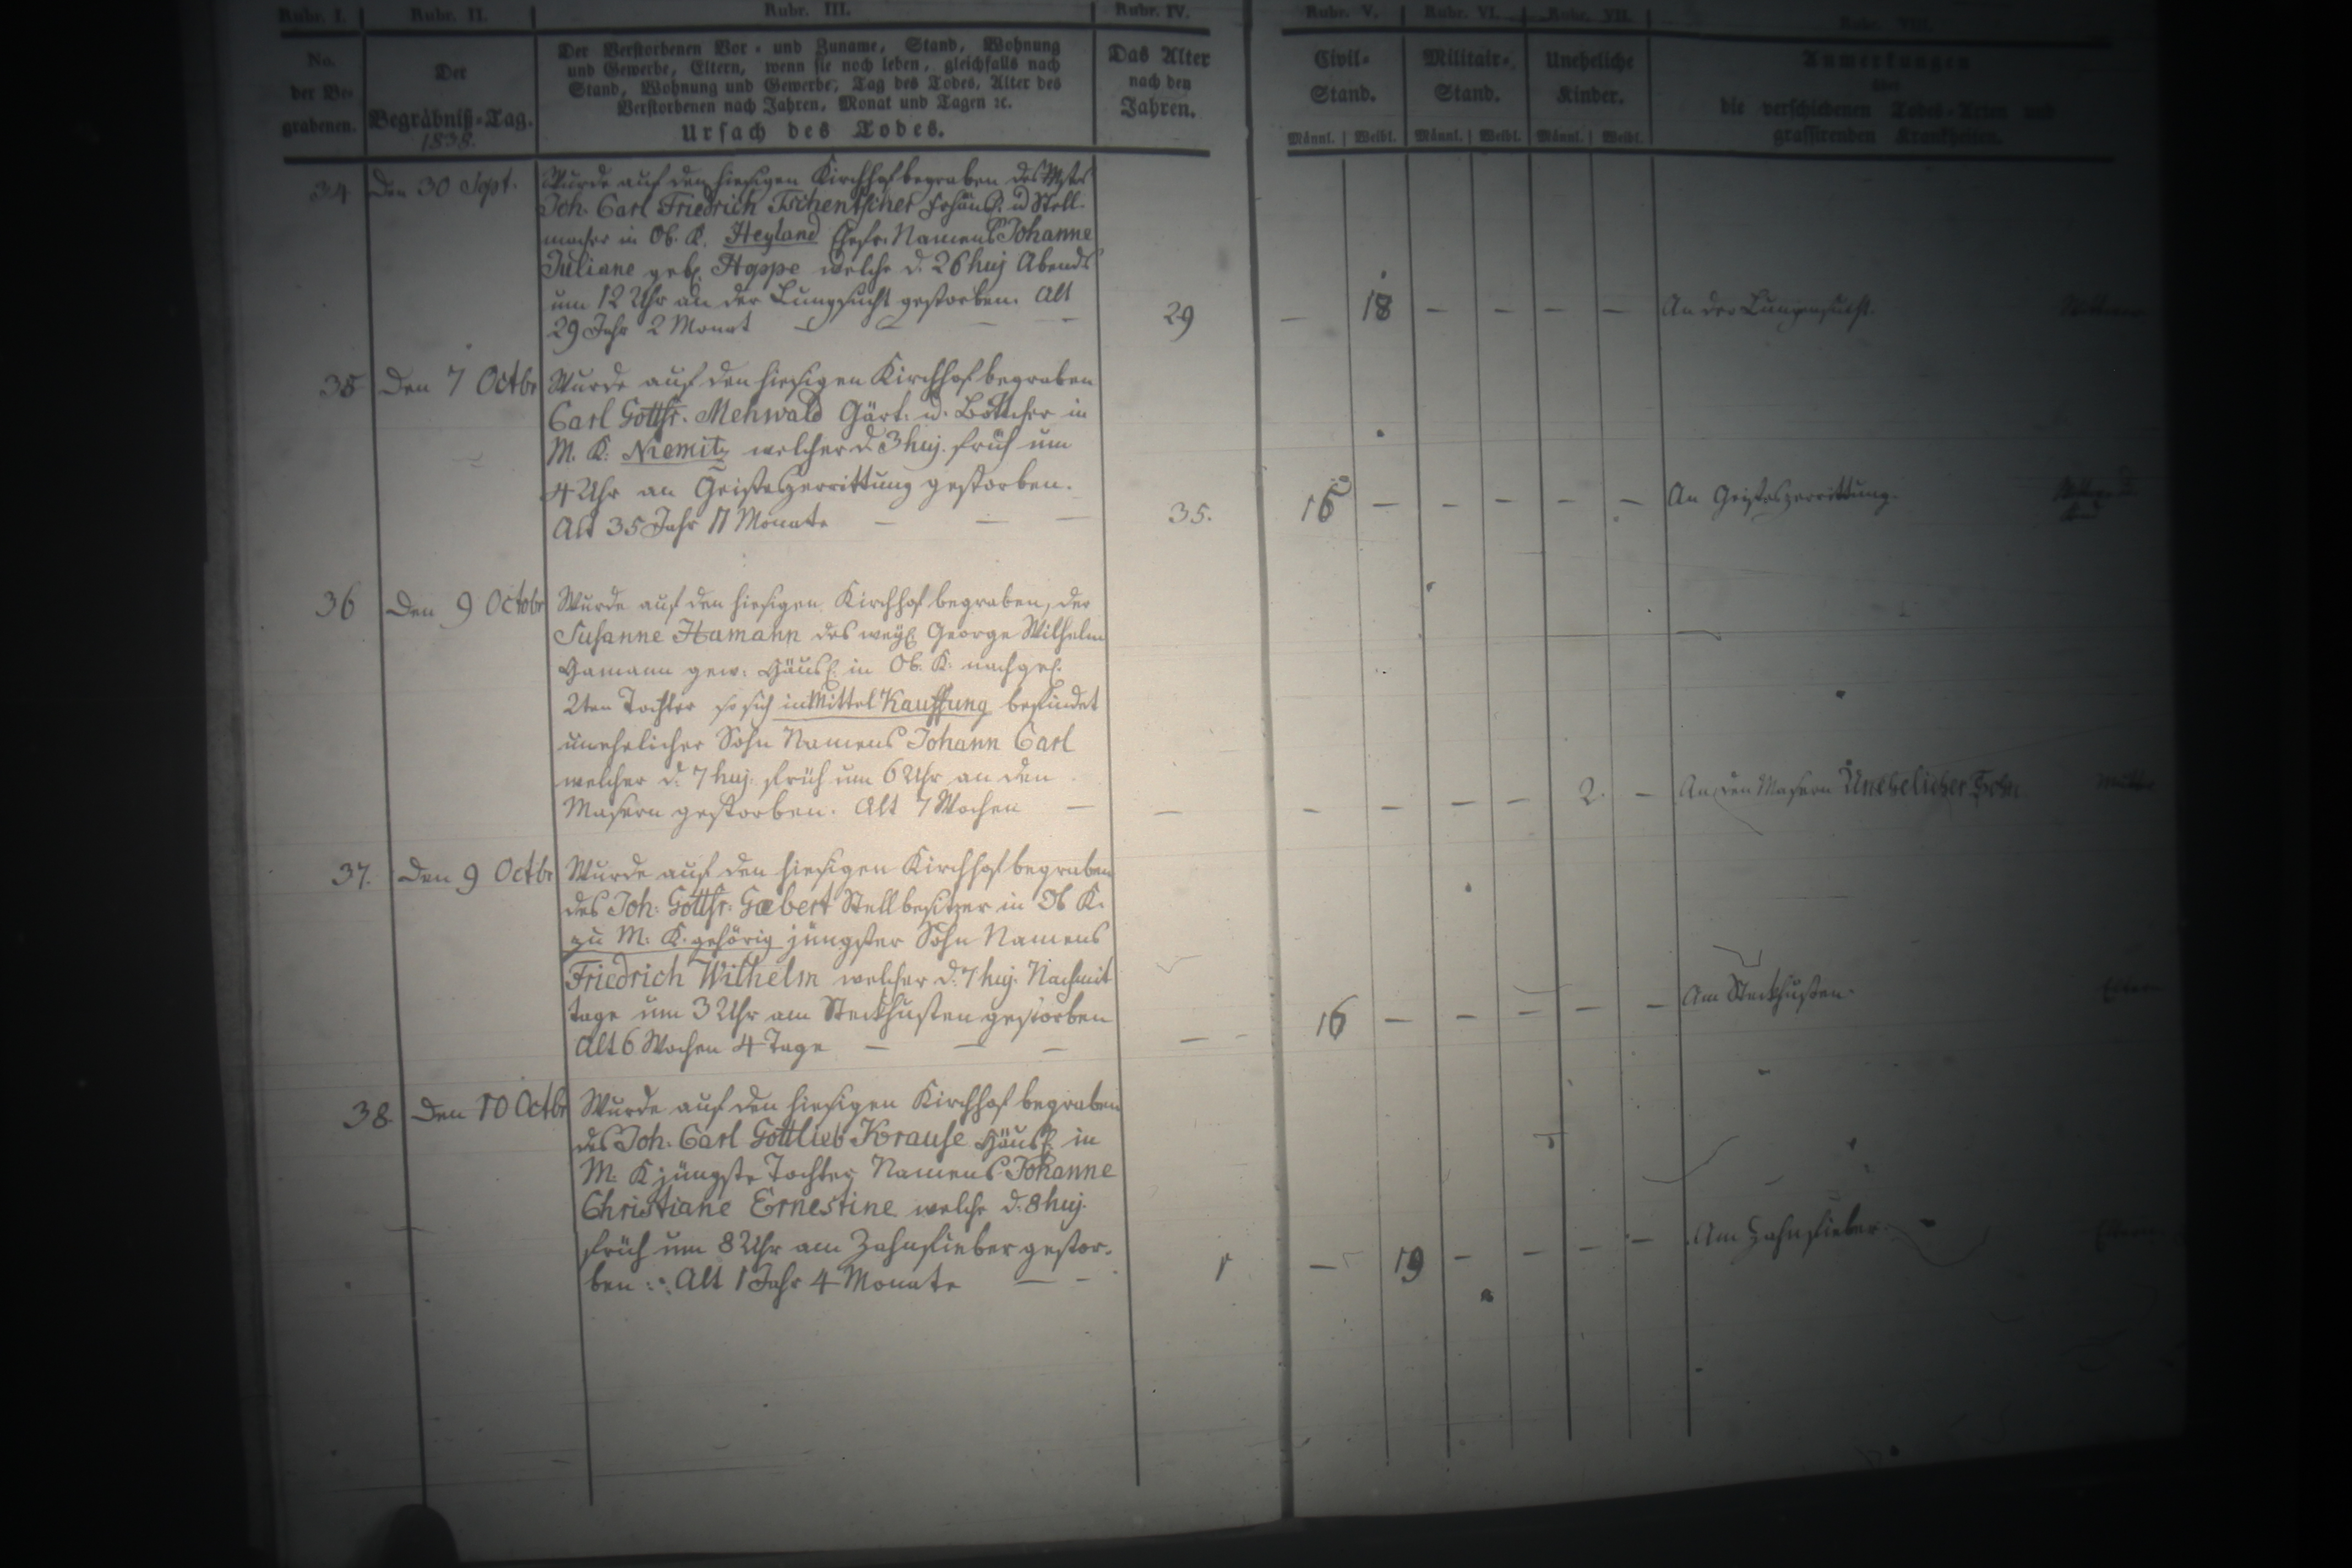 Rubr. I. Rubr. II. Rubr. III. Rubr. IV. Rubr. V. Rubr. VI. Rubr. VII. Rubr. VIII.
No.
der Be-
grabenen.
Der
Begräbniß-Tag.
1838.
Der Verstorbenen Vor- und Zuname, Stand, Wohnung
und Gewerbe, Eltern, wenn sie noch leben, gleichfalls nach
Stand, Wohnung und Gewerbe, Tag des Todes, Alter des
Verstorbenen nach Jahren, Monat und Tagen ꝛc.
Ursach des Todes.
Das Alter
nach den
Jahren.
Civil-
Stand.
Männl. Weibl.
Militair-
Stand.
Männl. Weibl.
Uneheliche
Kinder.
Männl. Weibl.
Anmerkungen
über
die verschiedenen Todes-Arten und
grassirenden Krankheiten.
34 Den 30 Sept.
Wurde auf den hiesigen Kirchhof begraben des
Joh. Carl Friedrich Tschentscher Frhäusl. u Stell-
macher in Ob. K. Heyland Ehefr. Namens Johanne
Juliane geb. Hoppe welche d. 26 huj Abends
um 12 Uhr an der Lungsucht gestorben. Alt
29 Jahr 2 Monat
29 — 18 — — — — An der Lungensucht.
35 Den 7 Octbr
Wurde auf den hiesigen Kirchhof begraben
Carl Gottfr. Mehwald Gärt: u. Böttcher in
M. K: Niemitz welcher d. 3 huj. früh um
4 Uhr an Geisteszerrittung gestorben.
Alt 35 Jahr 11 Monate — — —
35. 15 — — — — — An Geisteszerrittung.
36 Den 9 Octobr
Wurde auf den hiesigen Kirchhof begraben, der
Susanne Hamann des weyl. George Wilhelm
Hamann gew: Häusl. in Ob. K. nachgel.
2ten Tochter so sich in Mittel Kauffung befindet
unehelicher Sohn Namens Johann Carl
welcher d. 7 huj. früh um 6 Uhr an den
Masern gestorben. Alt 7 Wochen —
— — — — — 2. — An den Masern Unehelicher Sohn Mutter
37. Den 9 Octbr
Wurde auf den hiesigen Kirchhof begraben
des Joh: Gottfr: Gæbert Stellbesitzer in Ob K.
zu M: K. gehörig jüngster Sohn Namens
Friedrich Wilhelm welcher d. 7 huj. Nachmit
tage um 3 Uhr am Steckhusten gestorben
Alt 6 Wochen 4 Tage — — —
— 16 — — — — — Am Steckhusten. Eltern
38 Den 10 Octbr
Wurde auf den hiesigen Kirchhof begraben
des Joh. Carl Gottlieb Krause Häusl. in
M: K jüngste Tochter Namens Johanne
Christiane Ernestine welche d. 8 huj.
früh um 8 Uhr am Zahnfieber gestor-
ben. Alt 1 Jahr 4 Monate — —
1 — 19 — — — — Am Zahnfieber Eltern